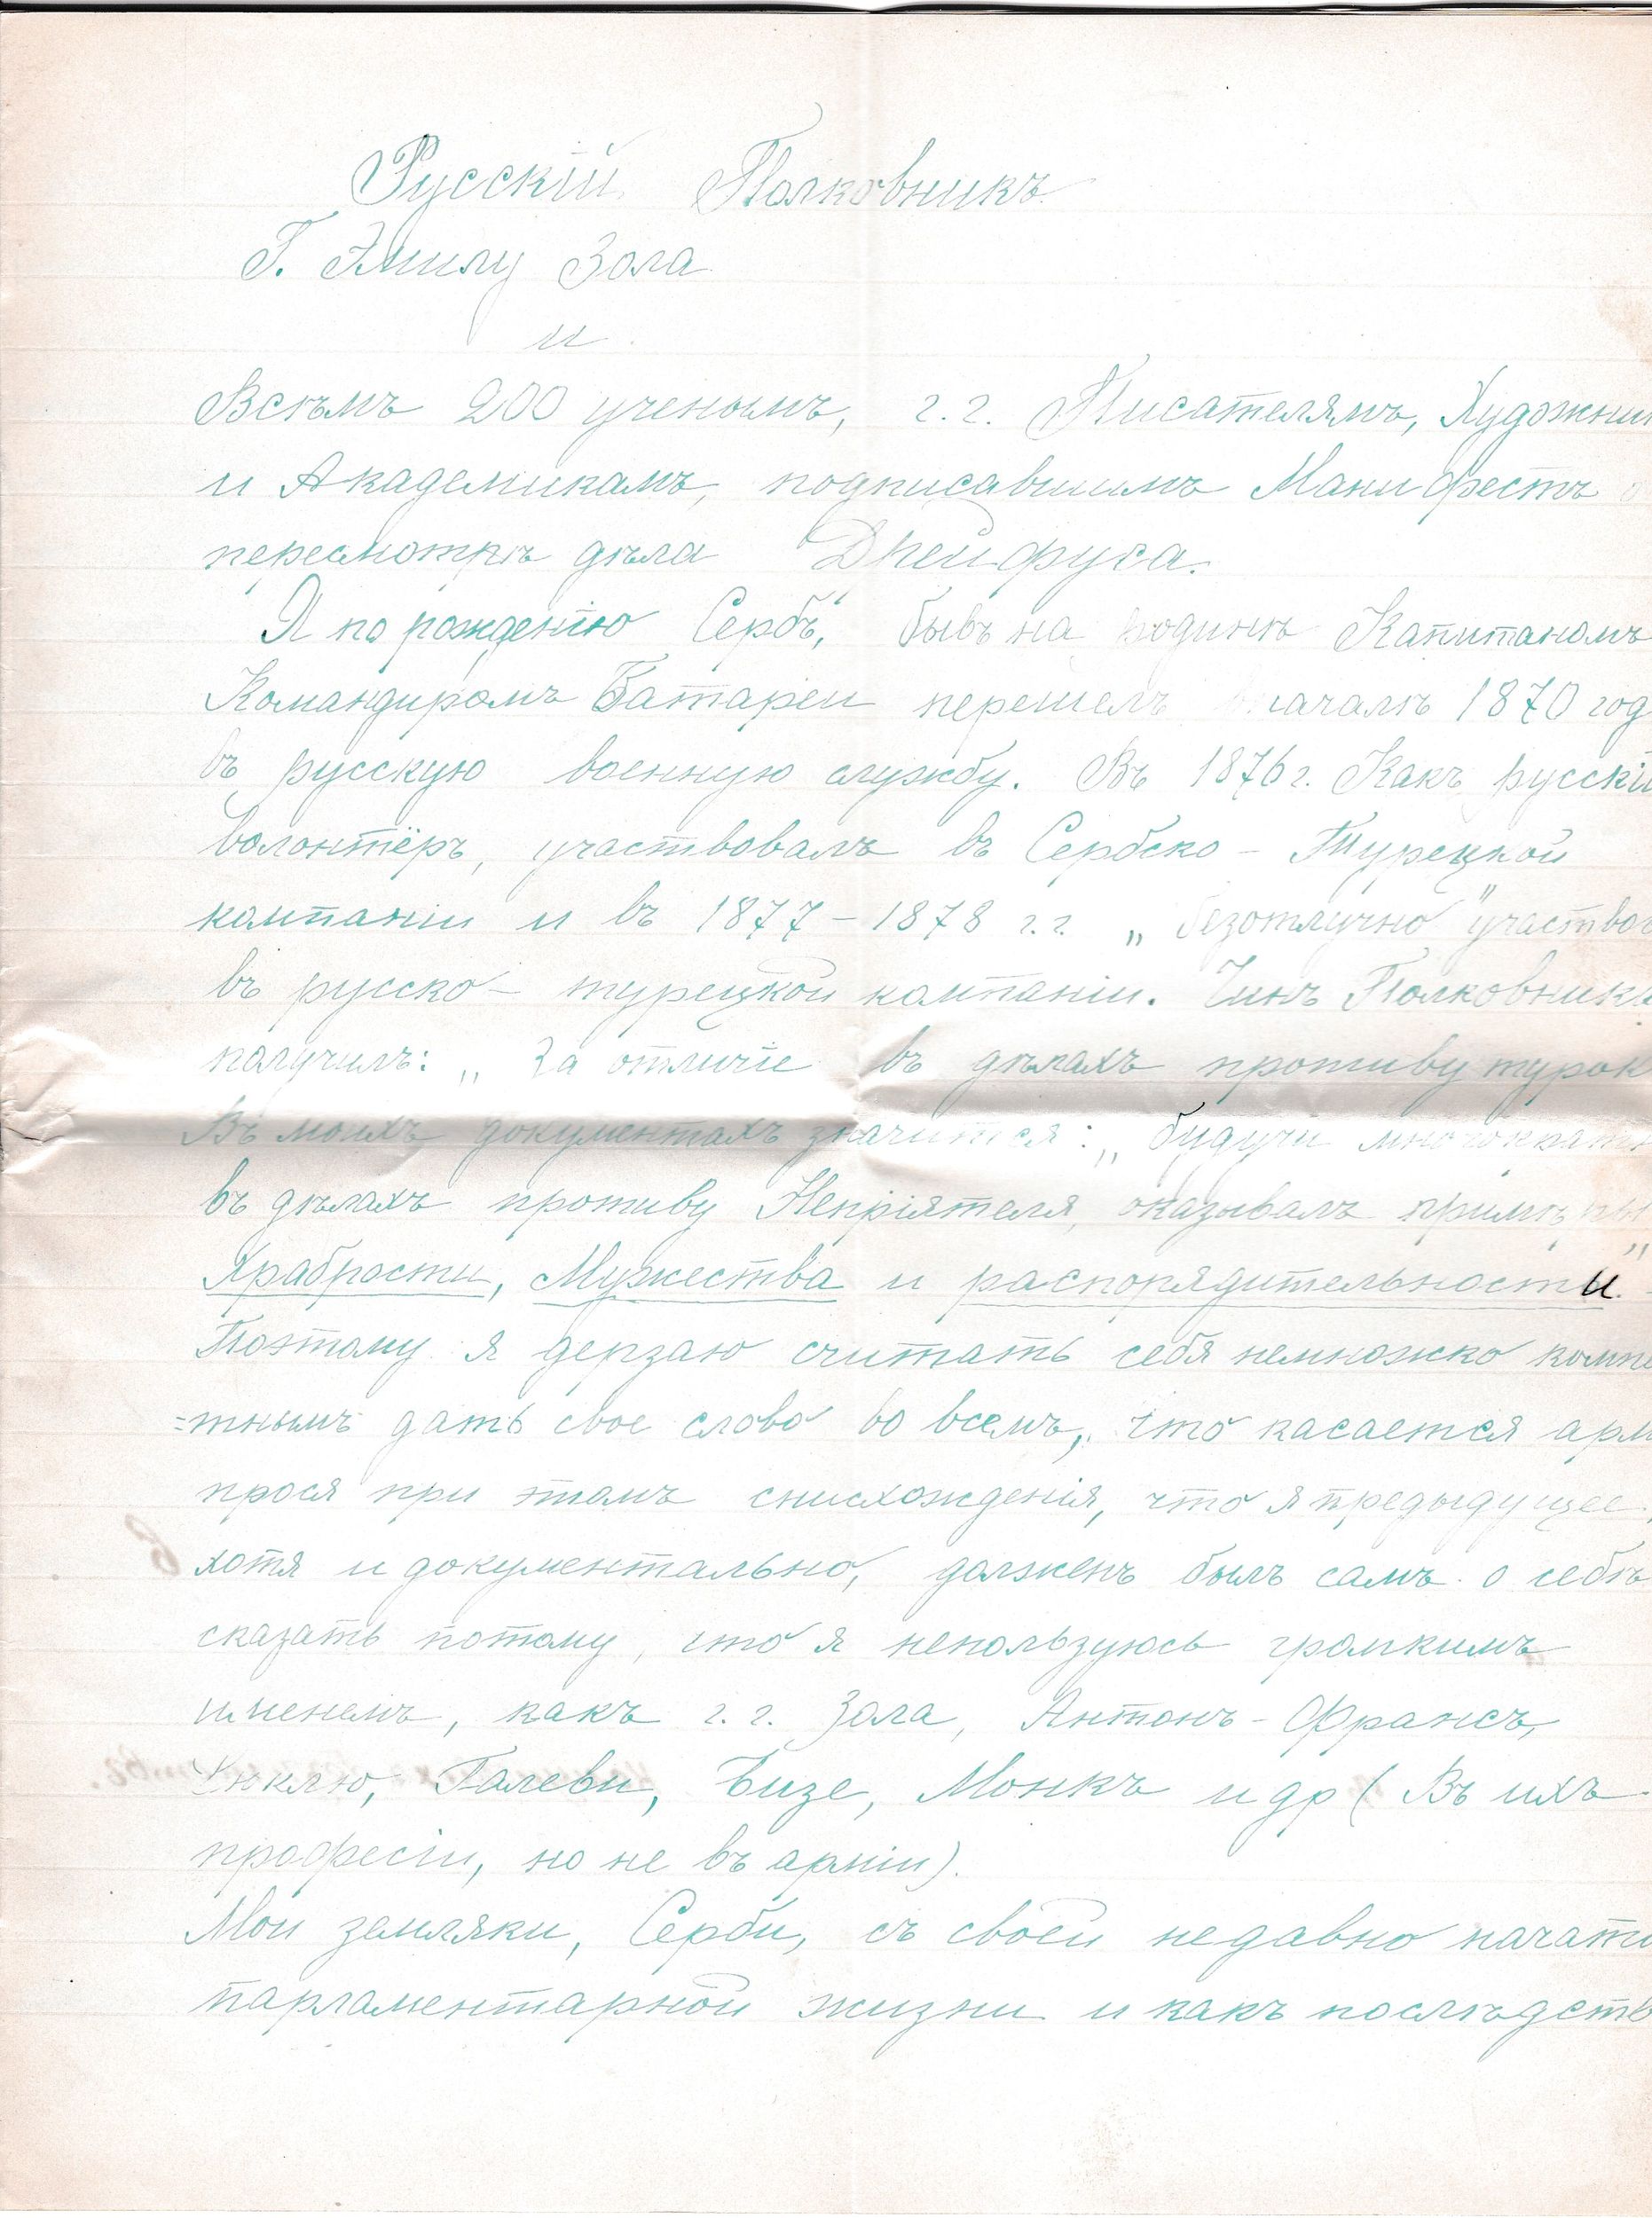 Русскій Полковникъ.
Г. Эмилу Зола
и
Всѣмъ 200 ученымъ, г.г. Писателямъ, Художни
и Академикамъ, подписавшимъ Манифестъ о
пересмотрѣ дѣла Дрейфуса.
Я по рождению Сербъ, бывъ на родинѣ Капитаномъ
Командиромъ Батареи перешелъ началѣ 1870 год
въ русскую военную службу. Въ 1876 г. Какъ русскі
волонтёръ, участвовалъ въ Сербско - Турецкой
компаніи и въ 1877 - 1878 г.г. „безотлучно" участво
въ русско - турецкой компаніи. Чинъ Полковник
получилъ: „За отличіе въ дѣлахъ противу турок
Въ моихъ документахъ значится: „будучи многократ
въ дѣлахъ противу Непріятеля, оказывалъ примѣры
Храбрости, Мужества и распорядительности".
Поэтому я дерзаю считать себя немножко компе
=тнымъ дать свое слово во всемъ, что касается арм
прося при этомъ снисхожденія, что я предыдущее,
хотя и документально, долженъ былъ самъ о себѣ
сказать потому, что я непользуюсь громкимъ
именемъ, какъ г.г. Зола, Антонъ - Франсъ,
Галеви, Бизе, Монкъ и др (Въ ихъ
професіи, но не въ арміи).
Мои земляки, Серби, съ своей недавно начат
парламентарной жизни и какъ послѣдств